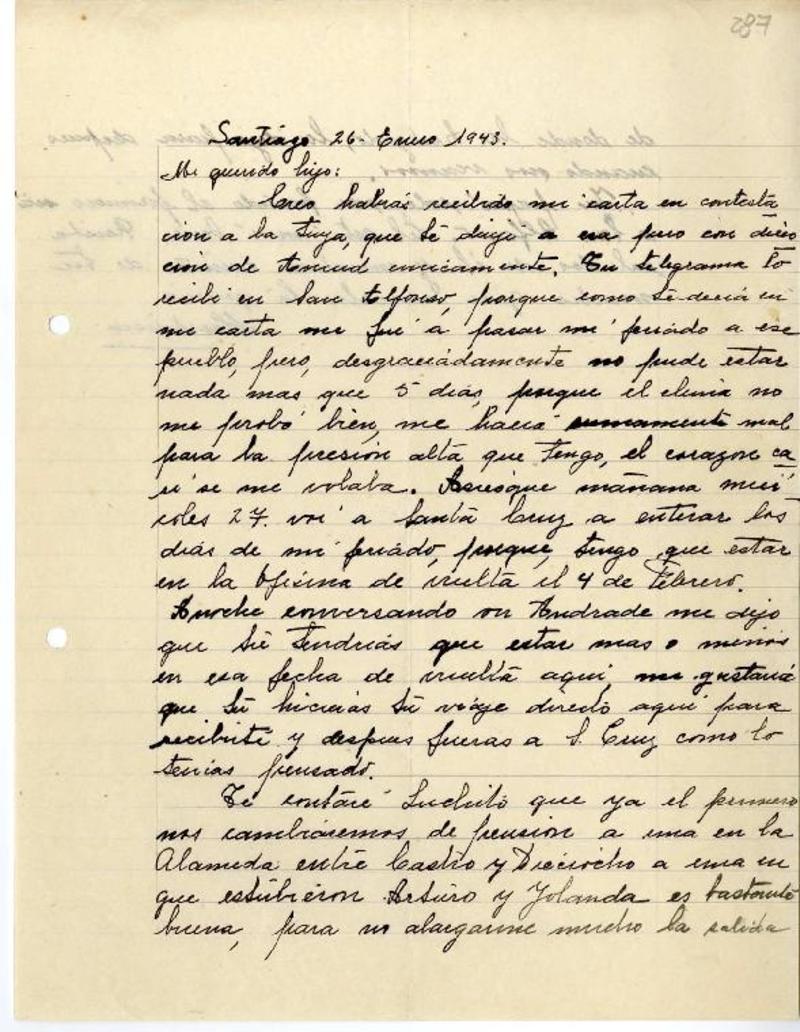 287
Santiago 26 - Enero 1943.
Mi querido hijo:
Creo habrás recibido mi carta en contesta
cion a la tuya, que te diriji a esa pero con direc
cion de Ancud unicamente. Tu telegrama lo
recibi en San Alfonso, porque como te decia en
mi carta me fui a pasar mi feriado a ese
pueblo, pero, desgraciadamente no pude estar
nada mas que 5 dias, porque el clima no
me probó bien, me hacia sumamente mal
para la presión alta que tengo, el corazon ca
si se me volaba. Asi es que mañana miér
coles 27. voi a Santa Cruz a enterar los
dias de mi feriado, porque, tengo que estar
en la Oficina de vuelta el 4 de Febrero.
Anoche conversando con Andrade me dijo
que tú tendrias que estar mas o menos
en esa fecha de vuelta aqui, me gustaria
que tú hicieras tú viaje directo aqui para
recibirte y despues fueras a S. Cruz como lo
tenias pensado.
Te contaré Luchito que ya el primero
nos cambiaremos de pension a una en la
Alameda entre Castro y Dieciocho a una en
que estubieron Arturo y Yolanda es bastante
buena, para no alargarme mucho la salida